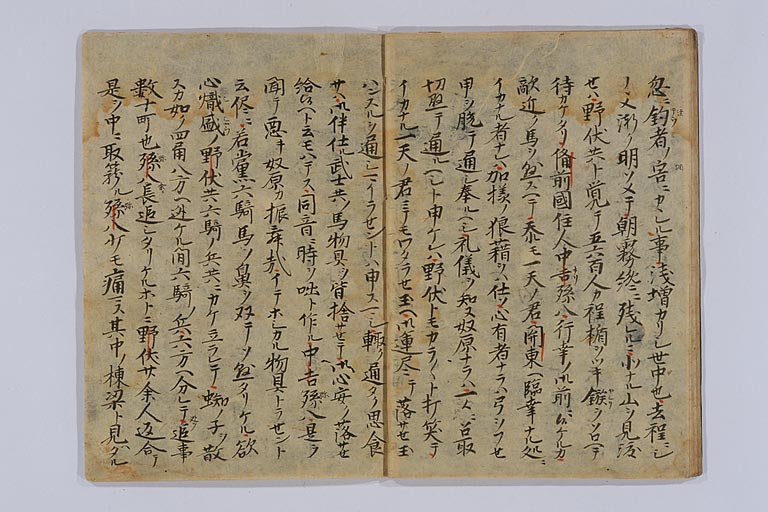 忽ニ釣者ノ害ニカヽル事ヲ浅増カリシ世中也去程ニシ
ノヽメ漸ク明ソメテ朝霧終ニ残レルニ小ナル山ヲ見渡
セハ野伏共ト覚テ五六百人カ程楯ヲツキ鏃ヲソロヘテ
待カケタリ備前國住人中吉孫八行幸ノ御前ニ候ケルカ
敵近ク馬ヲ懸スヘテ忝モ一天ノ君ノ関東ヘ臨幸ナル処ニ
イカナル者ナレハ加様ノ狼藉ヲハ仕ソ心有者ナラハ弓ヲフセ
甲ヲ脱テ通シ奉ルヘシ礼儀ヲ知ヌ奴原ナラハ一々ニ召取
切懸テ通ルヘシト申ケレハ野伏トモカラ〱ト打笑テ
イカナル一天ノ君ニテモワタラセ玉ヘ御運尽ニテ落サセ玉
ハンスルヲ通シマイラセントハ申スマシ輙ク通タク思食
サハ御伴仕ル武士共ノ馬物具ヲ皆捨サセテ御心安ク落サセ
給候ヘト云モハテス同音ニ時ヲ咄ト作ル中吉孫八是ヲ
聞テ悪キ奴原カ振舞哉イテホシカル物具トラセント
云侭ニ若黨六騎馬ノ鼻ヲ双テソ懸タリケル欲
心熾盛ノ野伏共六騎ノ兵共ニカケ立ラレテ蜘ノ子ヲ散
スカ如ク四角八方ヘ逃ケル間六騎ノ兵六方ヘ分レテ追事
数十町也孫八長追シタリケルホトニ野伏廿余人返合テ
是ヲ中ニ取籠ル孫八少モ痛マス其中ノ棟梁ト見タル